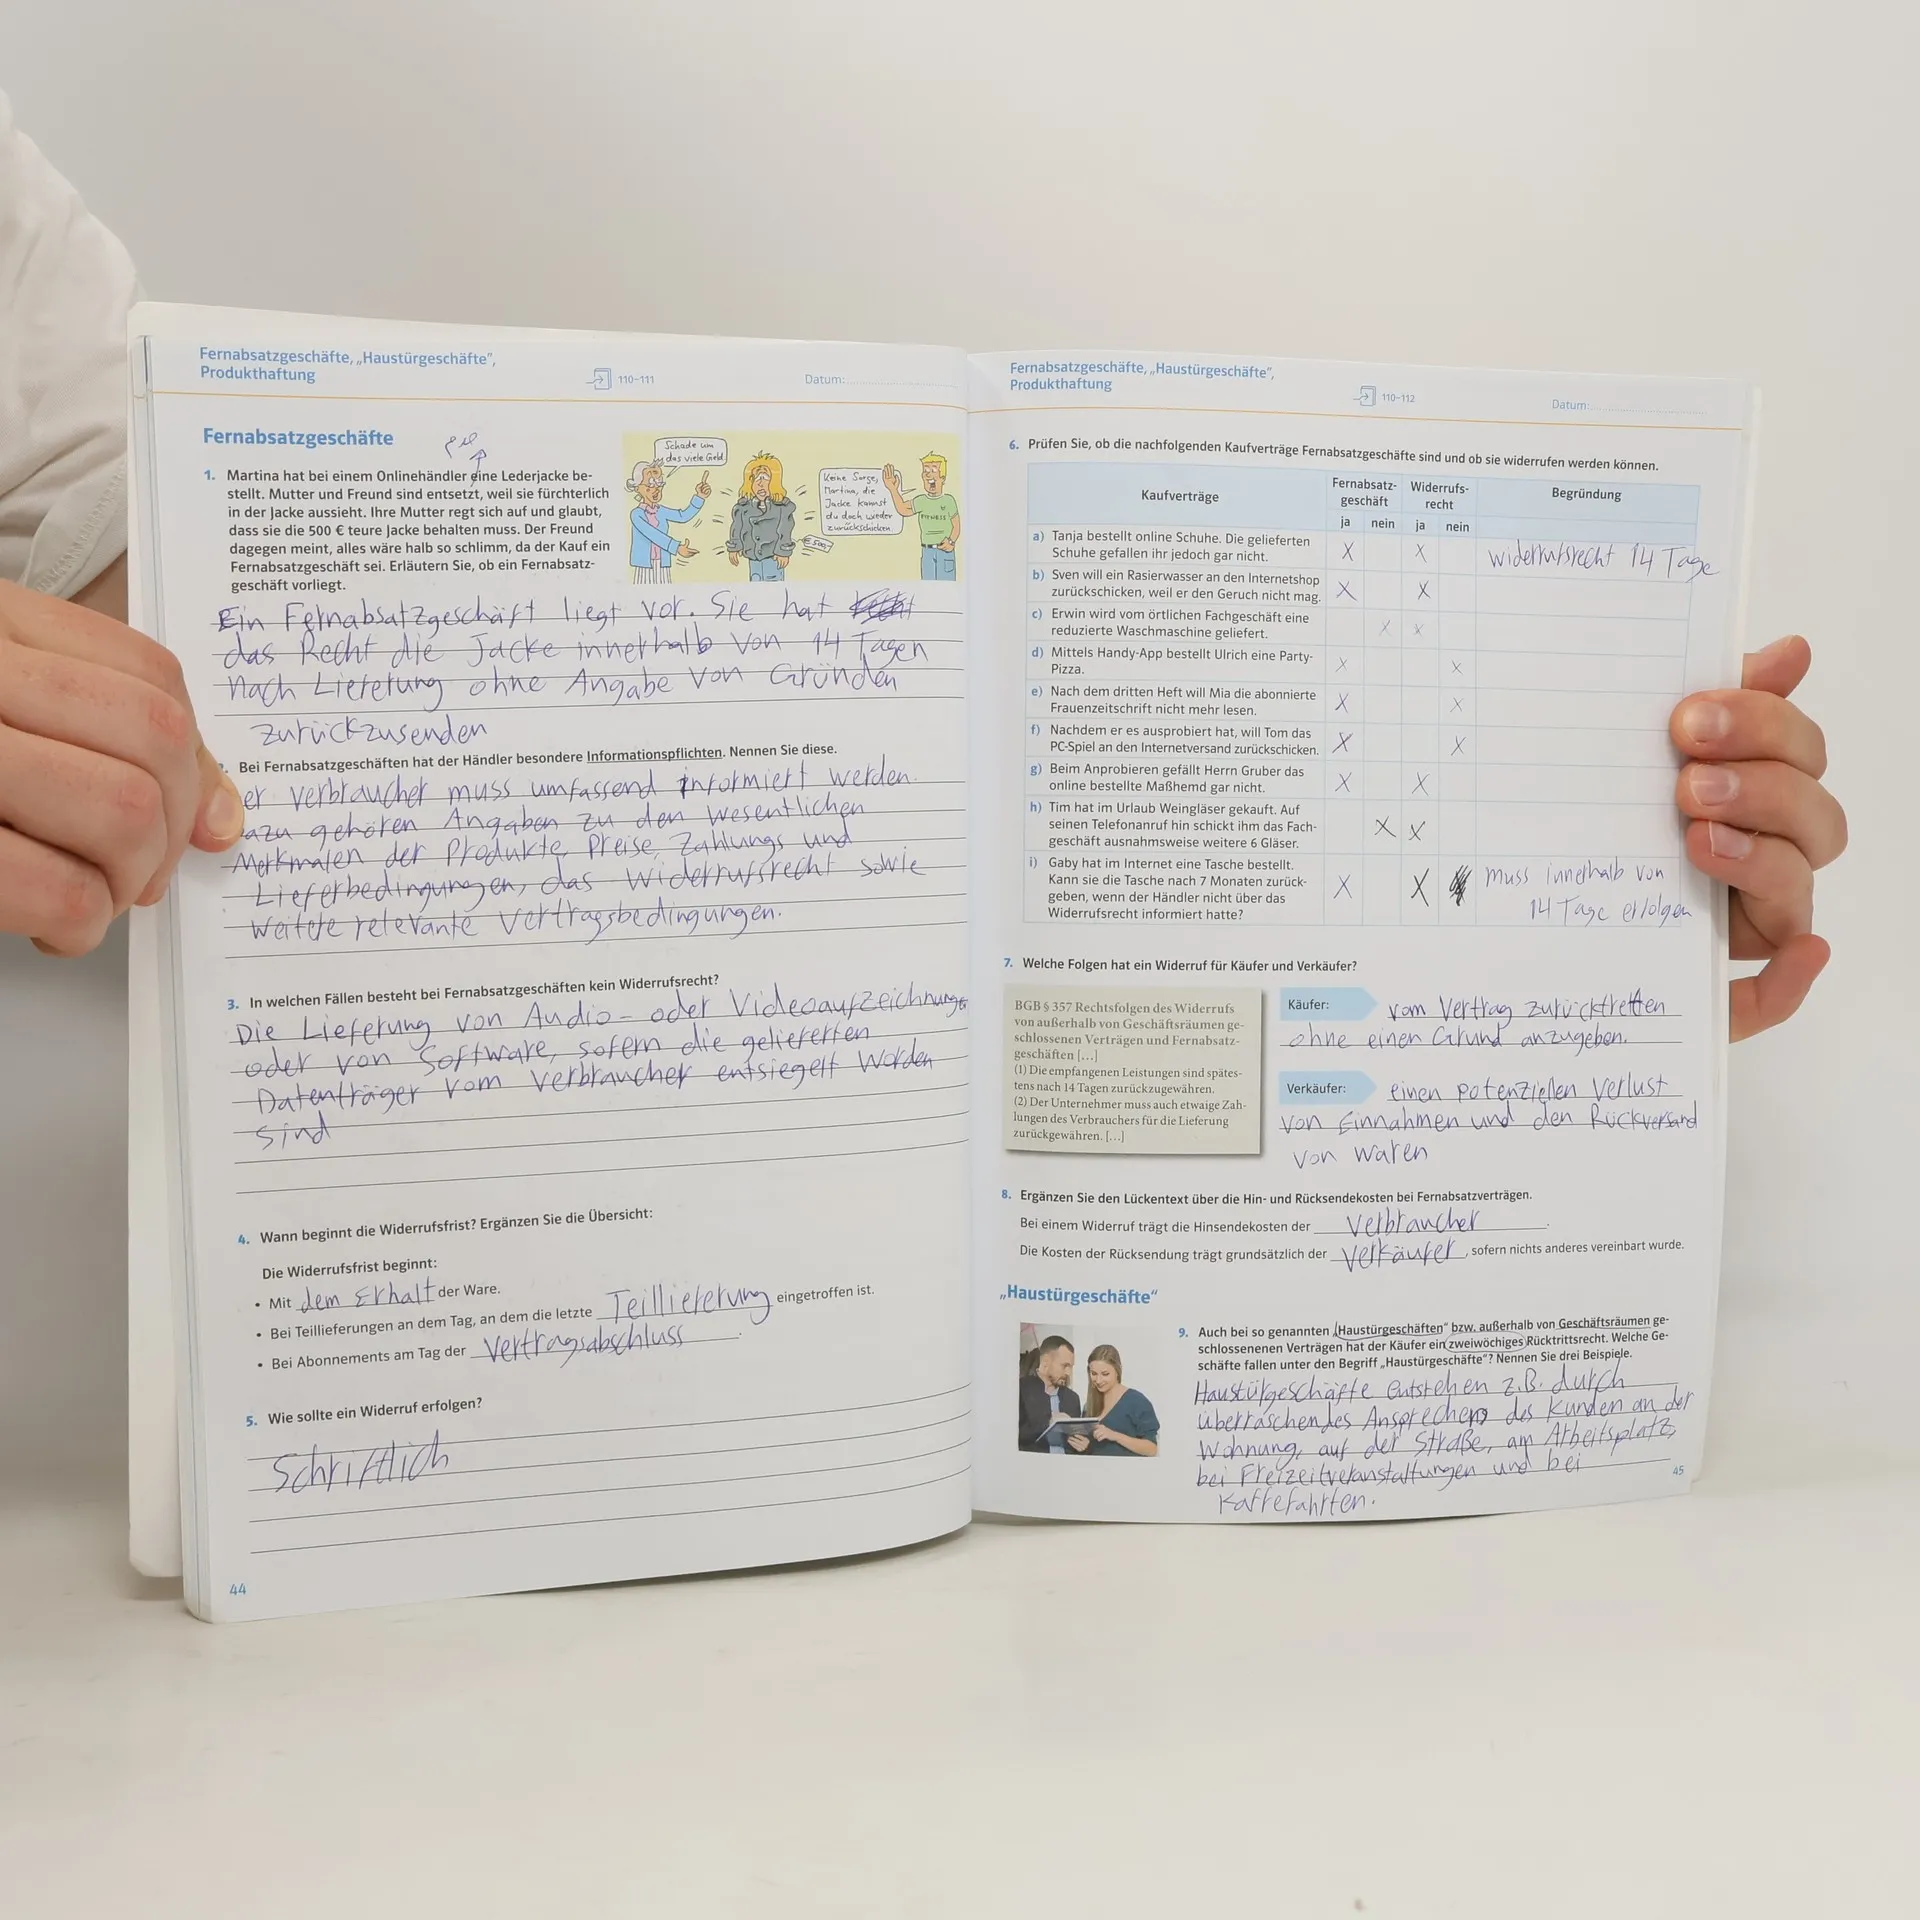 Fernabsatzgeschäfte, „Haustürgeschäfte“,
Produkthaftung
110–111
Datum:
Fernabsatzgeschäfte
1. Martina hat bei einem Onlinehändler eine Lederjacke be-
stellt. Mutter und Freund sind entsetzt, weil sie fürchterlich
in der Jacke aussieht. Ihre Mutter regt sich auf und glaubt,
dass sie die 500 € teure Jacke behalten muss. Der Freund
dagegen meint, alles wäre halb so schlimm, da der Kauf ein
Fernabsatzgeschäft sei. Erläutern Sie, ob ein Fernabsatz-
geschäft vorliegt.
Schade um
das viele Geld.
Keine Sorge,
Martina, die
Jacke kannst
du doch wieder
zurückschicken.
€ 500,-
FITNESS
Ein Fernabsatzgeschäft liegt vor. Sie hat
das Recht die Jacke innerhalb von 14 Tagen
nach Lieferung ohne Angabe von Gründen
zurückzusenden
Bei Fernabsatzgeschäften hat der Händler besondere Informationspflichten. Nennen Sie diese.
er Verbraucher muss umfassend informiert werden.
azu gehören Angaben zu den wesentlichen
Merkmalen der Produkte, Preise, Zahlungs und
Lieferbedingungen, das Widerrufsrecht sowie
weitere relevante Vertragsbedingungen.
3. In welchen Fällen besteht bei Fernabsatzgeschäften kein Widerrufsrecht?
Die Lieferung von Audio- oder Videoaufzeichnungen
oder von Software, sofern die gelieferten
Datenträger vom Verbraucher entsiegelt worden
sind
4. Wann beginnt die Widerrufsfrist? Ergänzen Sie die Übersicht:
Die Widerrufsfrist beginnt:
• Mit dem Erhalt der Ware.
• Bei Teillieferungen an dem Tag, an dem die letzte Teillieferung eingetroffen ist.
• Bei Abonnements am Tag der Vertragsabschluss.
5. Wie sollte ein Widerruf erfolgen?
Schriftlich
44
Fernabsatzgeschäfte, „Haustürgeschäfte“,
Produkthaftung
110–112
Datum:
6. Prüfen Sie, ob die nachfolgenden Kaufverträge Fernabsatzgeschäfte sind und ob sie widerrufen werden können.
Kaufverträge Fernabsatz-geschäft Widerrufs-recht Begründung
ja nein ja nein
a) Tanja bestellt online Schuhe. Die gelieferten X X widerrufsrecht 14 Tage
Schuhe gefallen ihr jedoch gar nicht.
b) Sven will ein Rasierwasser an den Internetshop X X
zurückschicken, weil er den Geruch nicht mag.
c) Erwin wird vom örtlichen Fachgeschäft eine X X
reduzierte Waschmaschine geliefert.
d) Mittels Handy-App bestellt Ulrich eine Party- X X
Pizza.
e) Nach dem dritten Heft will Mia die abonnierte X X
Frauenzeitschrift nicht mehr lesen.
f) Nachdem er es ausprobiert hat, will Tom das X X
PC-Spiel an den Internetversand zurückschicken.
g) Beim Anprobieren gefällt Herrn Gruber das X X
online bestellte Maßhemd gar nicht.
h) Tim hat im Urlaub Weingläser gekauft. Auf X X
seinen Telefonanruf hin schickt ihm das Fach-
geschäft ausnahmsweise weitere 6 Gläser.
i) Gaby hat im Internet eine Tasche bestellt. X X muss innerhalb von
Kann sie die Tasche nach 7 Monaten zurück- 14 Tage erfolgen
geben, wenn der Händler nicht über das
Widerrufsrecht informiert hatte?
7. Welche Folgen hat ein Widerruf für Käufer und Verkäufer?
BGB § 357 Rechtsfolgen des Widerrufs
von außerhalb von Geschäftsräumen ge-
schlossenen Verträgen und Fernabsatz-
geschäften [...]
(1) Die empfangenen Leistungen sind spätes-
tens nach 14 Tagen zurückzugewähren.
(2) Der Unternehmer muss auch etwaige Zah-
lungen des Verbrauchers für die Lieferung
zurückgewähren. [...]
Käufer: vom Vertrag zurücktretten
ohne einen Grund anzugeben.
Verkäufer: einen potenziellen Verlust
von Einnahmen und den Rückversand
von waren
8. Ergänzen Sie den Lückentext über die Hin- und Rücksendekosten bei Fernabsatzverträgen.
Bei einem Widerruf trägt die Hinsendekosten der Verbraucher.
Die Kosten der Rücksendung trägt grundsätzlich der Verkäufer, sofern nichts anderes vereinbart wurde.
„Haustürgeschäfte“
9. Auch bei so genannten „Haustürgeschäften“ bzw. außerhalb von Geschäftsräumen ge-
schlossenenen Verträgen hat der Käufer ein zweiwöchiges Rücktrittsrecht. Welche Ge-
schäfte fallen unter den Begriff „Haustürgeschäfte“? Nennen Sie drei Beispiele.
Haustürgeschäfte entstehen z.B. durch
überraschendes Ansprechen des Kunden an der
Wohnung, auf der Straße, am Arbeitsplatz,
bei Freizeitveranstaltungen und bei
Kaffefahrten.
45